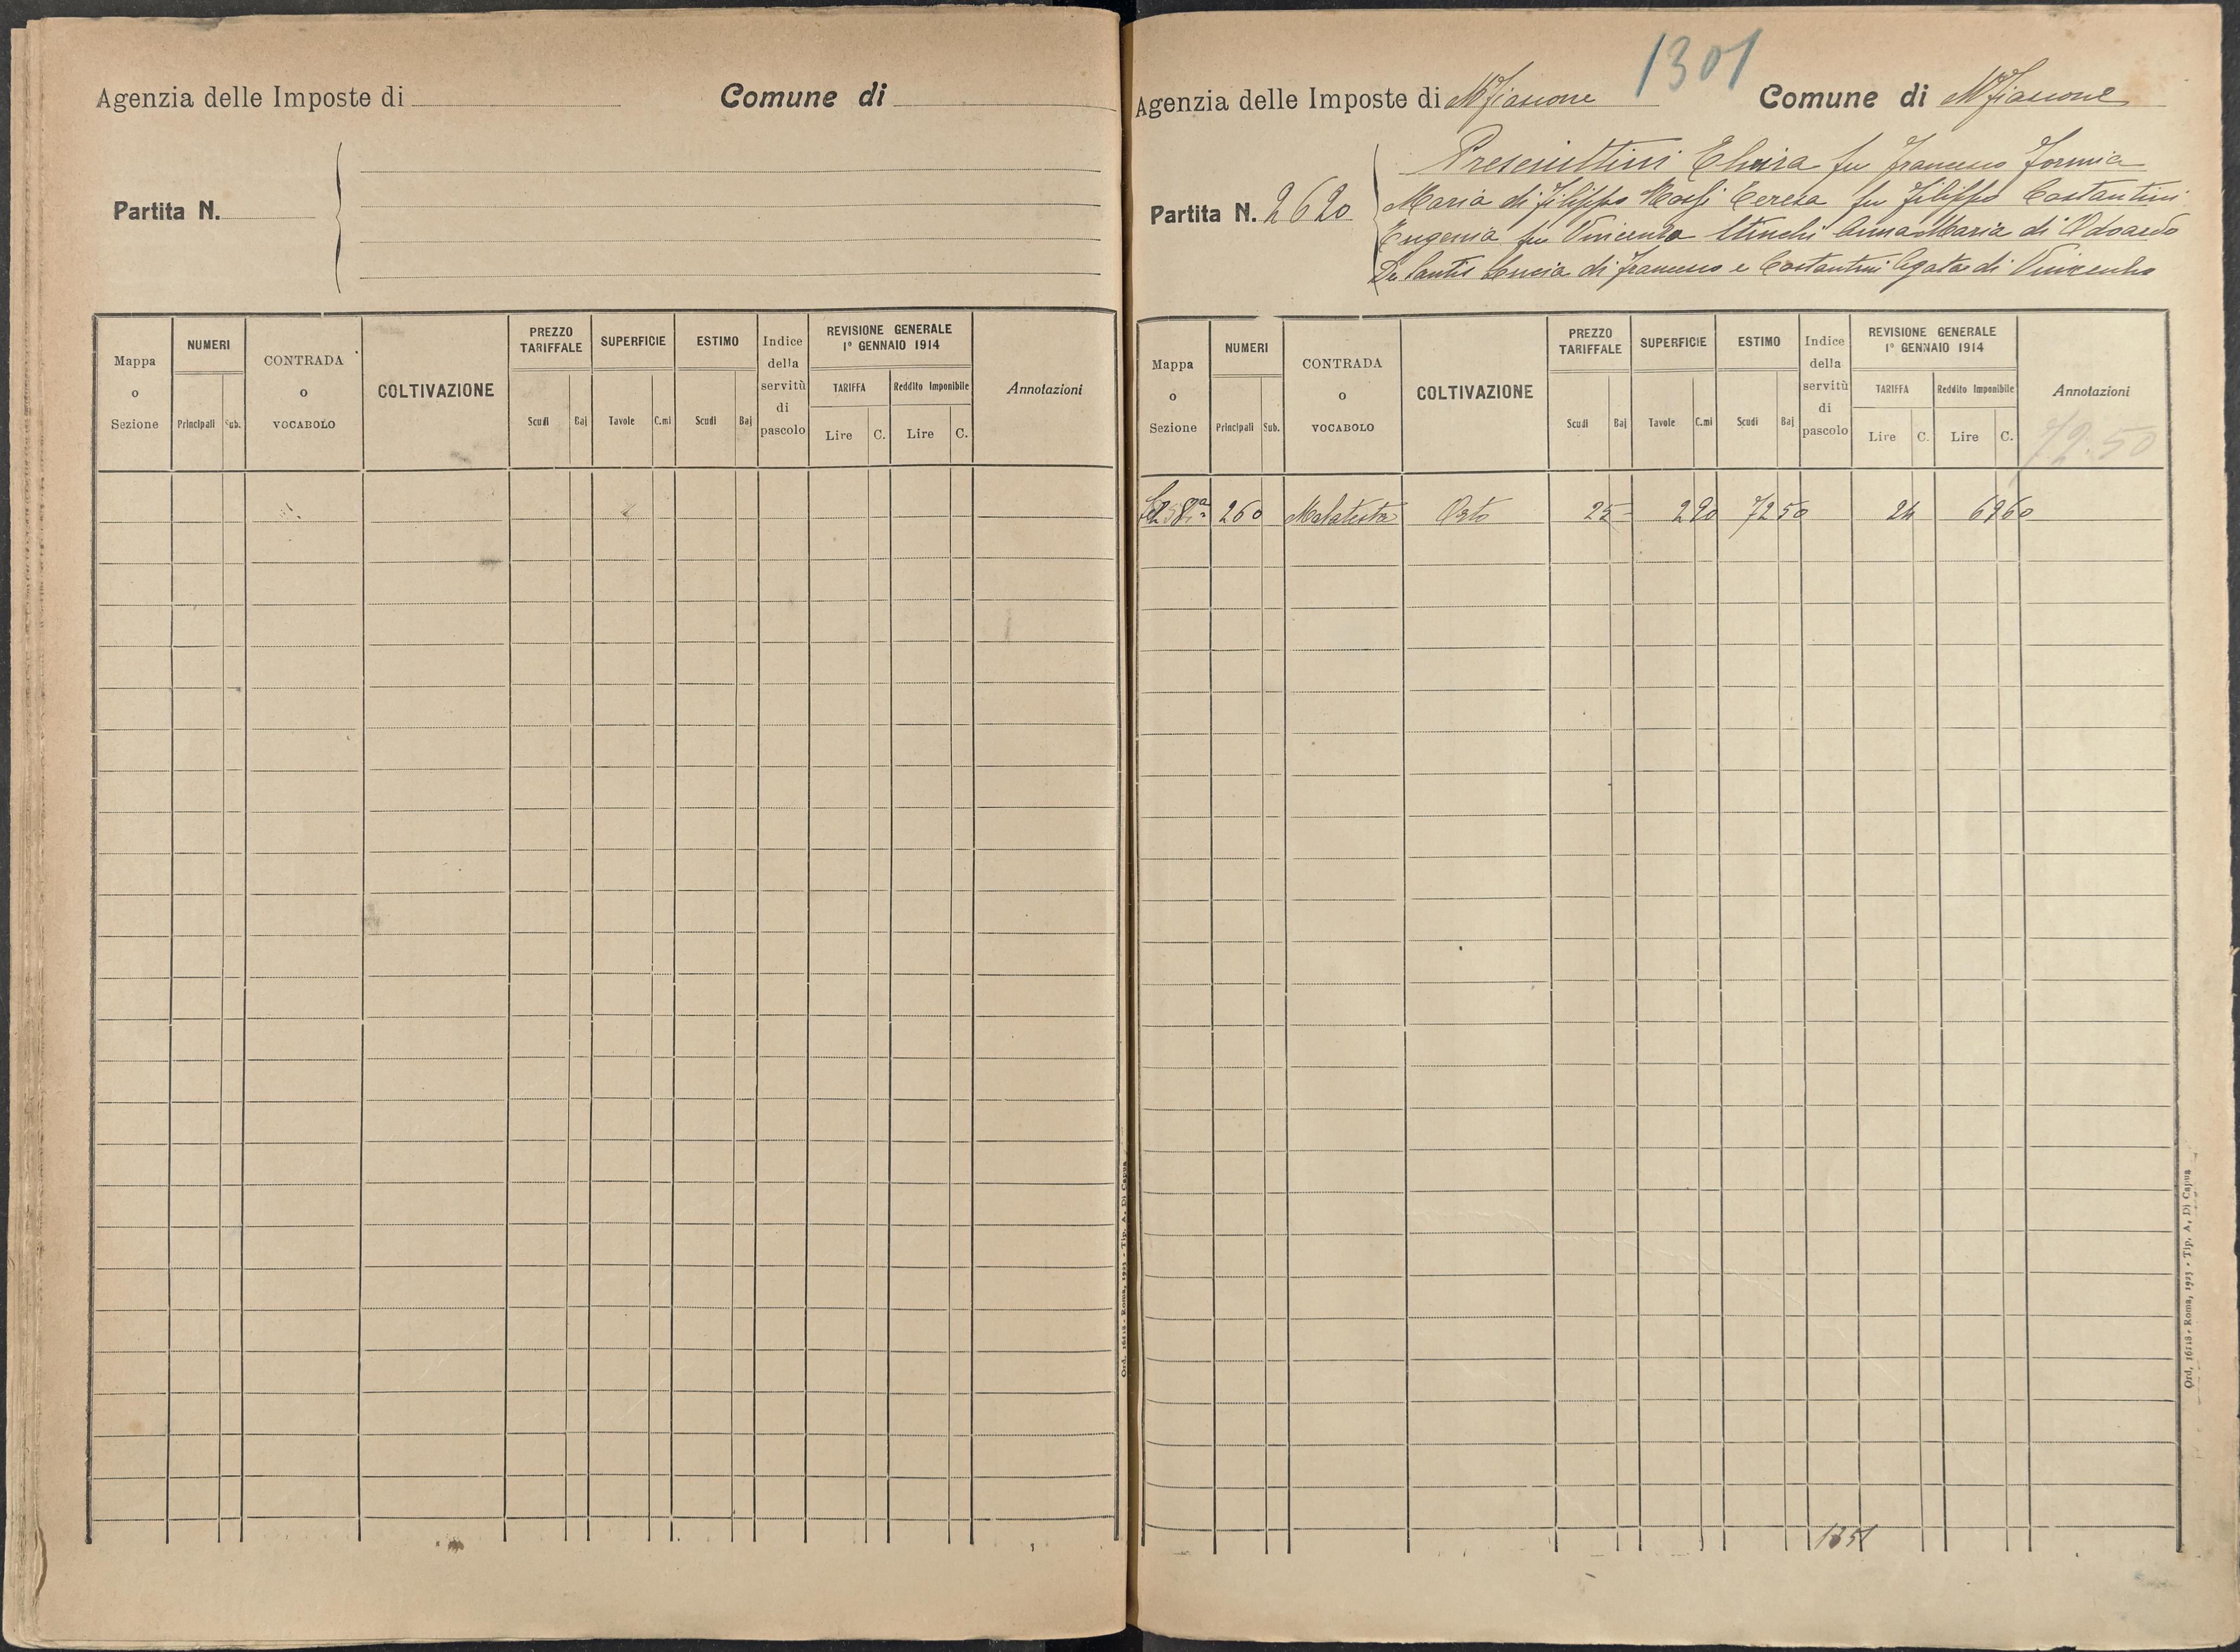 Agenzia delle Imposte di
Comune di
Partita N.
Mappa o Sezione
NUMERI
Principali Sub.
CONTRADA o VOCABOLO
COLTIVAZIONE
PREZZO TARIFFALE
Scudi Baj
SUPERFICIE
Tavole C.mi
ESTIMO
Scudi Baj
Indice della servitù di pascolo
REVISIONE GENERALE
1° GENNAIO 1914
TARIFFA Reddito Imponibile
Lire C. Lire C.
Annotazioni
Ord. 16518 - Roma, 1923 - Tip. A. Di Capua
1301
Agenzia delle Imposte di Mfiascone
Comune di Mfiascone
Partita N. 2620
Elvira fu Francesco Formica
Maria di Filippo Rossi Teresa fu Filippo Costantini
Eugenia fu Vincenzo Stinchi Anna Maria di Odoardo
De Santis Lucia di Francesco e Costantini Agata di Vincenzo
Mappa o Sezione
NUMERI
Principali Sub.
CONTRADA o VOCABOLO
COLTIVAZIONE
PREZZO TARIFFALE
Scudi Baj
SUPERFICIE
Tavole C.mi
ESTIMO
Scudi Baj
Indice della servitù di pascolo
REVISIONE GENERALE
1° GENNAIO 1914
TARIFFA Reddito Imponibile
Lire C. Lire C.
Annotazioni
72.50
260 Malatesta Orto 25 - 2 90 72 50 24 69 60
Ord. 16518 - Roma, 1923 - Tip. A. Di Capua